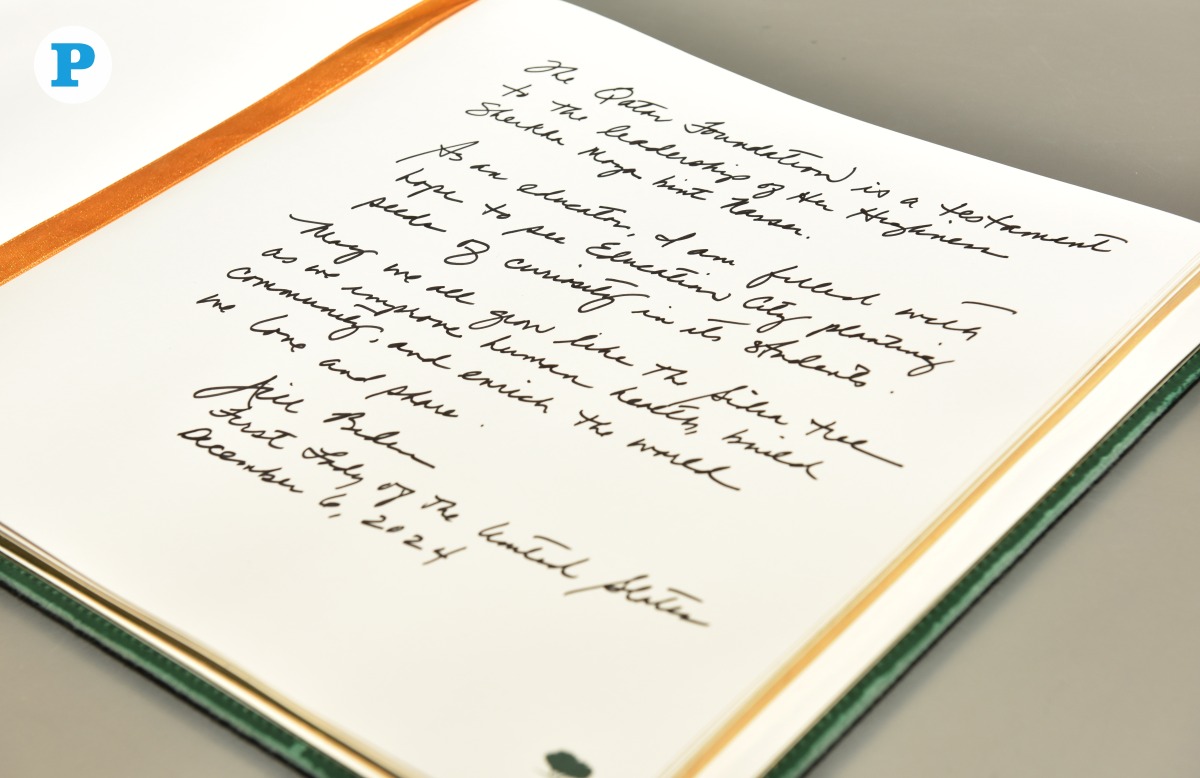 P
The Qatar Foundation is a testament
to the leadership of Her Highness
Sheikha Moza bint Nasser.
As an educator, I am filled with
hope to see Education City planting
seeds of curiosity in its students.
May we all grow like the Sidra tree
as we improve human health, build
community, and enrich the world
we love and share.
Jill Biden
First Lady of the United States
December 6, 2024